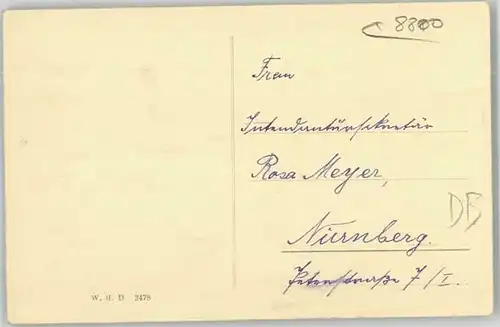 8800
Frau
Intendantursekretär
Rosa Meyer,
DB
Nürnberg.
Peterstraße 7/I.
W. H. D 2478